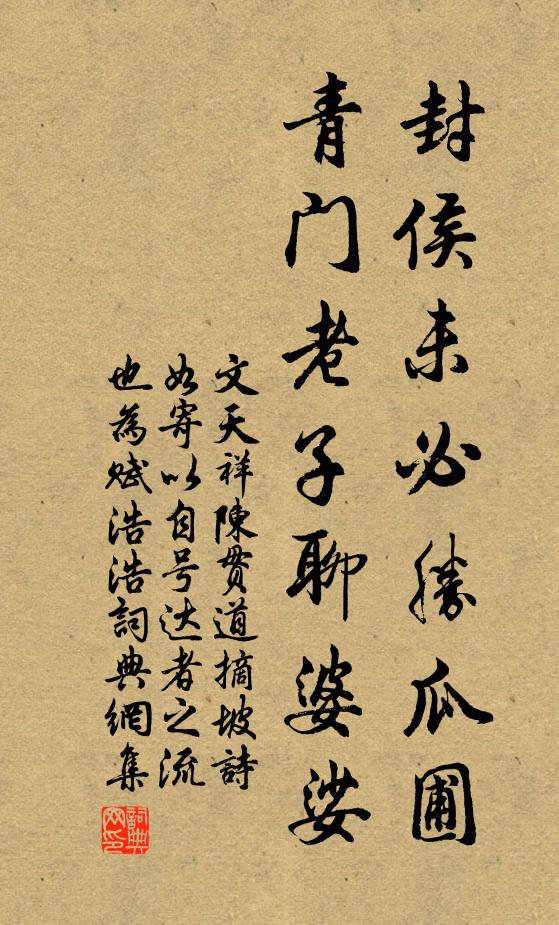 封侯未必勝瓜圃
青门老子聊婆娑
文天祥陳貫道摘坡詩
如寄以自号达者之流
也為赋浩浩詞典網集
詞典
网印